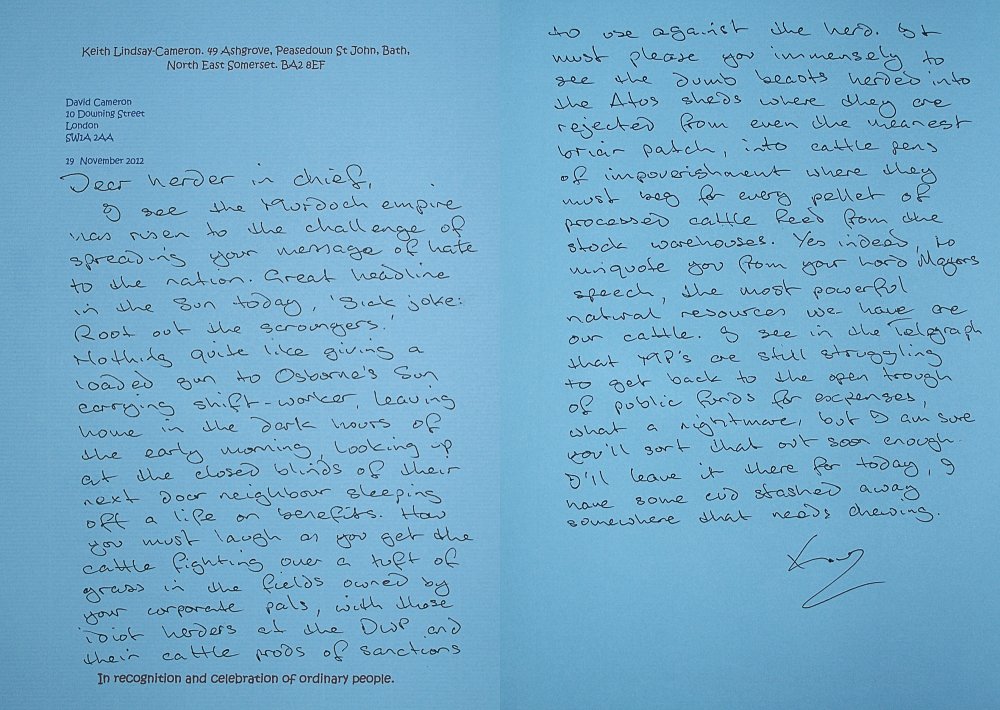 Keith Lindsay-Cameron. 49 Ashgrove, Peasedown St John, Bath,
North East Somerset. BA2 8EF
David Cameron
10 Downing Street
London
SW1A 2AA
19 November 2012
Dear herder in chief,
I see the Murdoch empire
has risen to the challenge of
spreading your message of hate
to the nation. Great headline
in the Sun today, 'Sick joke:
Root out the scroungers.'
Nothing quite like giving a
loaded gun to Osborne's Sun
carrying shift-worker, leaving
home in the dark hours of
the early morning, looking up
at the closed blinds of their
next door neighbour sleeping
off a life on benefits. How
you must laugh as you get the
cattle fighting over a tuft of
grass in the fields owned by
your corporate pals, with those
idiot herders at the DWP and
their cattle prods of sanctions
In recognition and celebration of ordinary people.
to use against the herd. It
must please you immensely to
see the dumb beasts herded into
the Atos sheds where they are
rejected from even the meanest
briar patch, into cattle pens
of impoverishment where they
must beg for every pellet of
processed cattle feed from the
stock warehouses. Yes indeed, to
misquote you from your Lord Mayors
speech, the most powerful
natural resources we have are
our cattle. I see in the Telegraph
that MP's are still struggling
to get back to the open trough
of public funds for expenses,
what a nightmare, but I am sure
you'll sort that out soon enough.
I'll leave it there for today, I
have some cud stashed away
somewhere that needs chewing.